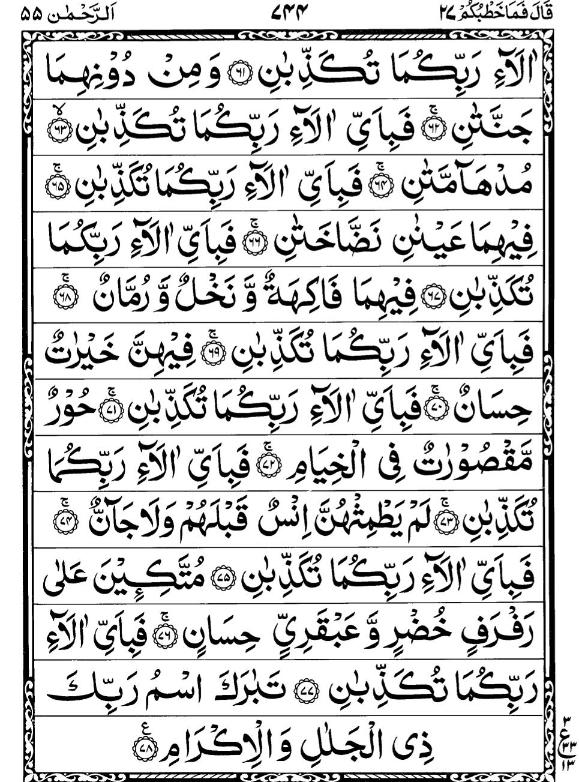 قَالَ فَمَا خَطْبُكُمْ ٢٧ ٧٤٤ اَلرَّحْمٰن ٥٥
اٰلَآءِ رَبِّكُمَا تُكَذِّبٰنِ ﴿٦١﴾ وَمِنْ دُوْنِهِمَا
جَنَّتٰنِ ۚ﴿٦٢﴾ فَبِاَيِّ اٰلَآءِ رَبِّكُمَا تُكَذِّبٰنِ ۙ﴿٦٣﴾
مُدْهَآمَّتٰنِ ۚ﴿٦٤﴾ فَبِاَيِّ اٰلَآءِ رَبِّكُمَا تُكَذِّبٰنِ ۚ﴿٦٥﴾
فِيْهِمَا عَيْنٰنِ نَضَّاخَتٰنِ ۚ﴿٦٦﴾ فَبِاَيِّ اٰلَآءِ رَبِّكُمَا
تُكَذِّبٰنِ ﴿٦٧﴾ فِيْهِمَا فَاكِهَةٌ وَّ نَخْلٌ وَّ رُمَّانٌ ۚ﴿٦٨﴾
فَبِاَيِّ اٰلَآءِ رَبِّكُمَا تُكَذِّبٰنِ ۚ﴿٦٩﴾ فِيْهِنَّ خَيْرٰتٌ
حِسَانٌ ۚ﴿٧٠﴾ فَبِاَيِّ اٰلَآءِ رَبِّكُمَا تُكَذِّبٰنِ ۚ﴿٧١﴾ حُوْرٌ
مَّقْصُوْرٰتٌ فِى الْخِيَامِ ۚ﴿٧٢﴾ فَبِاَيِّ اٰلَآءِ رَبِّكُمَا
تُكَذِّبٰنِ ۚ﴿٧٣﴾ لَمْ يَطْمِثْهُنَّ اِنْسٌ قَبْلَهُمْ وَلَا جَآنٌّ ۚ﴿٧٤﴾
فَبِاَيِّ اٰلَآءِ رَبِّكُمَا تُكَذِّبٰنِ ﴿٧٥﴾ مُتَّكِـِٕيْنَ عَلٰى
رَفْرَفٍ خُضْرٍ وَّ عَبْقَرِيٍّ حِسَانٍ ۚ﴿٧٦﴾ فَبِاَيِّ اٰلَآءِ
رَبِّكُمَا تُكَذِّبٰنِ ﴿٧٧﴾ تَبٰرَكَ اسْمُ رَبِّكَ
ذِى الْجَلٰلِ وَ الْاِكْرَامِ ﴿٧٨﴾ع
٣
ع ٣٣
١٣